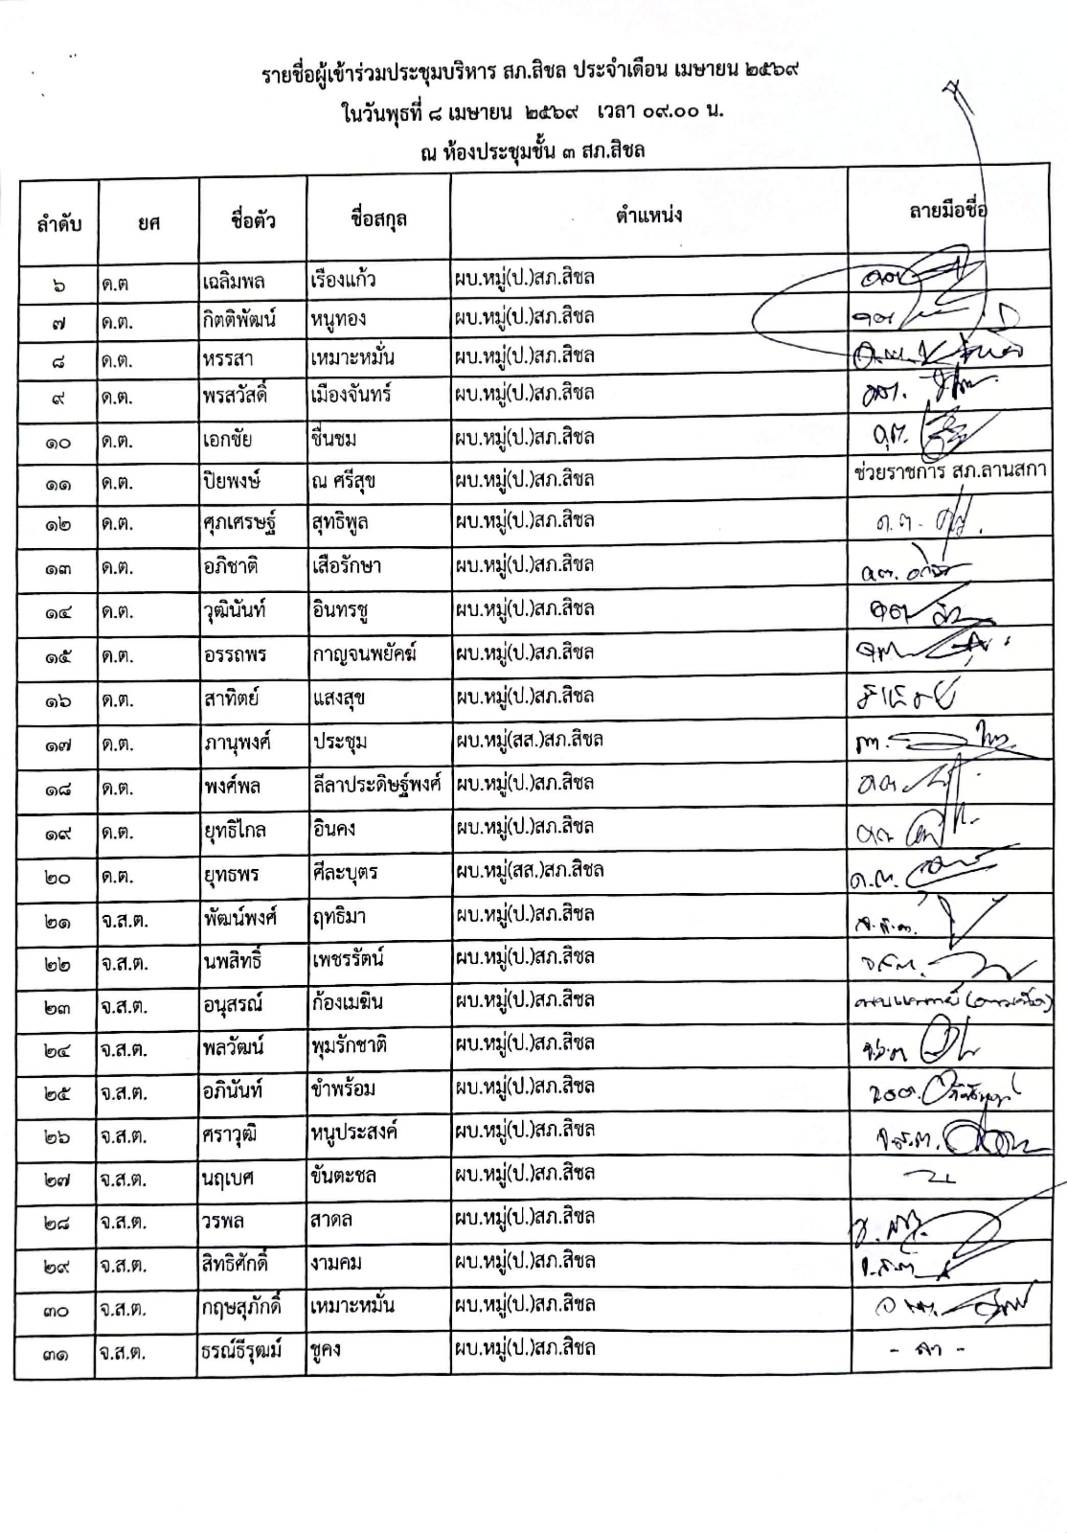 รายชื่อผู้เข้าร่วมประชุมบริหาร สภ.สิชล ประจำเดือน เมษายน ๒๕๖๙
ในวันพุธที่ ๘ เมษายน ๒๕๖๙ เวลา ๐๙.๐๐ น.
ณ ห้องประชุมชั้น ๓ สภ.สิชล
ลำดับ ยศ ชื่อตัว ชื่อสกุล ตำแหน่ง ลายมือชื่อ
๖ ด.ต เฉลิมพล เรืองแก้ว ผบ.หมู่(ป.)สภ.สิชล
๗ ด.ต. กิตติพัฒน์ หนูทอง ผบ.หมู่(ป.)สภ.สิชล
๘ ด.ต. หรรสา เหมาะหมั่น ผบ.หมู่(ป.)สภ.สิชล
๙ ด.ต. พรสวัสดิ์ เมืองจันทร์ ผบ.หมู่(ป.)สภ.สิชล
๑๐ ด.ต. เอกชัย ชื่นชม ผบ.หมู่(ป.)สภ.สิชล ด.ต.
๑๑ ด.ต. ปิยพงษ์ ณ ศรีสุข ผบ.หมู่(ป.)สภ.สิชล ช่วยราชการ สภ.ลานสกา
๑๒ ด.ต. ศุภเศรษฐ์ สุทธิพูล ผบ.หมู่(ป.)สภ.สิชล ด.ต.
๑๓ ด.ต. อภิชาติ เสือรักษา ผบ.หมู่(ป.)สภ.สิชล ด.ต.
๑๔ ด.ต. วุฒินันท์ อินทรชู ผบ.หมู่(ป.)สภ.สิชล
๑๕ ด.ต. อรรถพร กาญจนพยัคฆ์ ผบ.หมู่(ป.)สภ.สิชล
๑๖ ด.ต. สาทิตย์ แสงสุข ผบ.หมู่(ป.)สภ.สิชล
๑๗ ด.ต. ภานุพงศ์ ประชุม ผบ.หมู่(สส.)สภ.สิชล
๑๘ ด.ต. พงศ์พล ลีลาประดิษฐ์พงศ์ ผบ.หมู่(ป.)สภ.สิชล
๑๙ ด.ต. ยุทธิไกล อินคง ผบ.หมู่(ป.)สภ.สิชล
๒๐ ด.ต. ยุทธพร ศีละบุตร ผบ.หมู่(สส.)สภ.สิชล ด.ต.
๒๑ จ.ส.ต. พัฒน์พงศ์ ฤทธิมา ผบ.หมู่(ป.)สภ.สิชล จ.ส.ต.
๒๒ จ.ส.ต. นพสิทธิ์ เพชรรัตน์ ผบ.หมู่(ป.)สภ.สิชล จ.ส.ต.
๒๓ จ.ส.ต. อนุสรณ์ ก้องเมฆิน ผบ.หมู่(ป.)สภ.สิชล
๒๔ จ.ส.ต. พลวัฒน์ พุมรักชาติ ผบ.หมู่(ป.)สภ.สิชล
๒๕ จ.ส.ต. อภินันท์ ขำพร้อม ผบ.หมู่(ป.)สภ.สิชล
๒๖ จ.ส.ต. ศราวุฒิ หนูประสงค์ ผบ.หมู่(ป.)สภ.สิชล จ.ส.ต.
๒๗ จ.ส.ต. นฤเบศ ขันตะชล ผบ.หมู่(ป.)สภ.สิชล
๒๘ จ.ส.ต. วรพล สาดล ผบ.หมู่(ป.)สภ.สิชล
๒๙ จ.ส.ต. สิทธิศักดิ์ งามคม ผบ.หมู่(ป.)สภ.สิชล จ.ส.ต.
๓๐ จ.ส.ต. กฤษสุภักดิ์ เหมาะหมั่น ผบ.หมู่(ป.)สภ.สิชล
๓๑ จ.ส.ต. ธรณ์ธีรุฒม์ ชูคง ผบ.หมู่(ป.)สภ.สิชล - ลา -